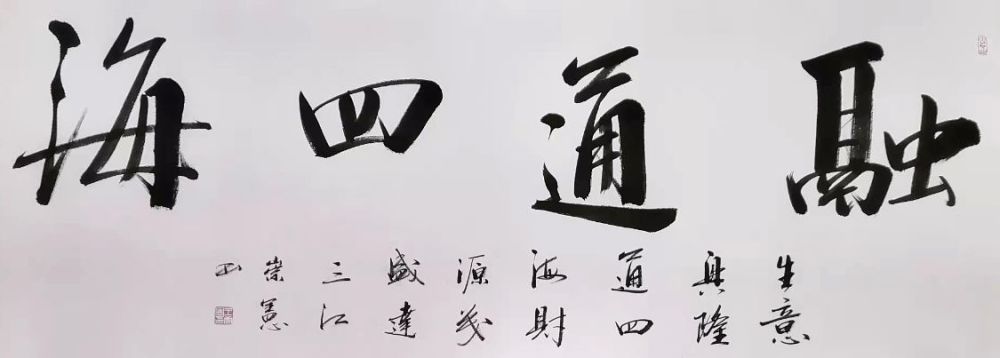 融通四海
生意
興隆
通四
海財
源茂
盛達
三江
崇憲